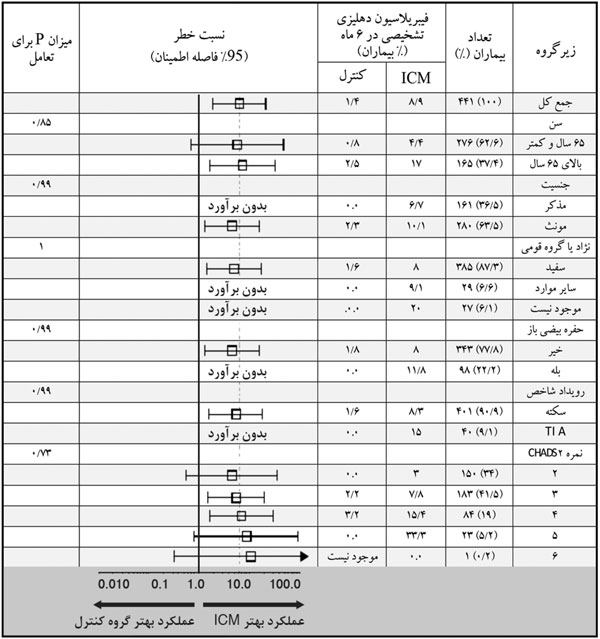 زیرگروه | تعداد بیماران (٪) | فیبریلاسیون دهلیزی تشخیصی در ۶ ماه (٪ بیماران) | نسبت خطر (۹۵٪ فاصله اطمینان) | میزان P برای تعامل
ICM | کنترل
جمع کل | ۴۴۱ (۱۰۰) | ۸/۹ | ۱/۴
سن | ۰/۸۵
۶۵ سال و کمتر | ۲۷۶ (۶۲/۶) | ۴/۴ | ۰/۸
بالای ۶۵ سال | ۱۶۵ (۳۷/۴) | ۱۷ | ۲/۵
جنسیت | ۰/۹۹
مذکر | ۱۶۱ (۳۶/۵) | ۶/۷ | ۰.۰ | بدون برآورد
مونث | ۲۸۰ (۶۳/۵) | ۱۰/۱ | ۲/۳
نژاد یا گروه قومی | ۱
سفید | ۳۸۵ (۸۷/۳) | ۸ | ۱/۶
سایر موارد | ۲۹ (۶/۶) | ۹/۱ | ۰.۰ | بدون برآورد
موجود نیست | ۲۷ (۶/۱) | ۲۰ | ۰.۰. | بدون برآورد
حفره بیضی باز | ۰/۹۹
خیر | ۳۴۳ (۷۷/۸) | ۸ | ۱/۸
بله | ۹۸ (۲۲/۲) | ۱۱/۸ | ۰.۰ | بدون برآورد
رویداد شاخص | ۰/۹۹
سکته | ۴۰۱ (۹۰/۹) | ۸/۳ | ۱/۶
TIA | ۴۰ (۹/۱) | ۱۵ | ۰.۰ | بدون برآورد
نمره CHADS۲ | ۰/۷۳
۲ | ۱۵۰ (۳۴) | ۳ | ۰.۰
۳ | ۱۸۳ (۴۱/۵) | ۷/۸ | ۲/۲
۴ | ۸۴ (۱۹) | ۱۵/۴ | ۳/۲
۵ | ۲۳ (۵/۲) | ۳۳/۳ | ۰.۰
۶ | ۱ (۰/۲) | ۰.۰ | موجود نیست
0.010 0.1 1.0 10.0 100.0
عملکرد بهتر ICM | عملکرد بهتر گروه کنترل